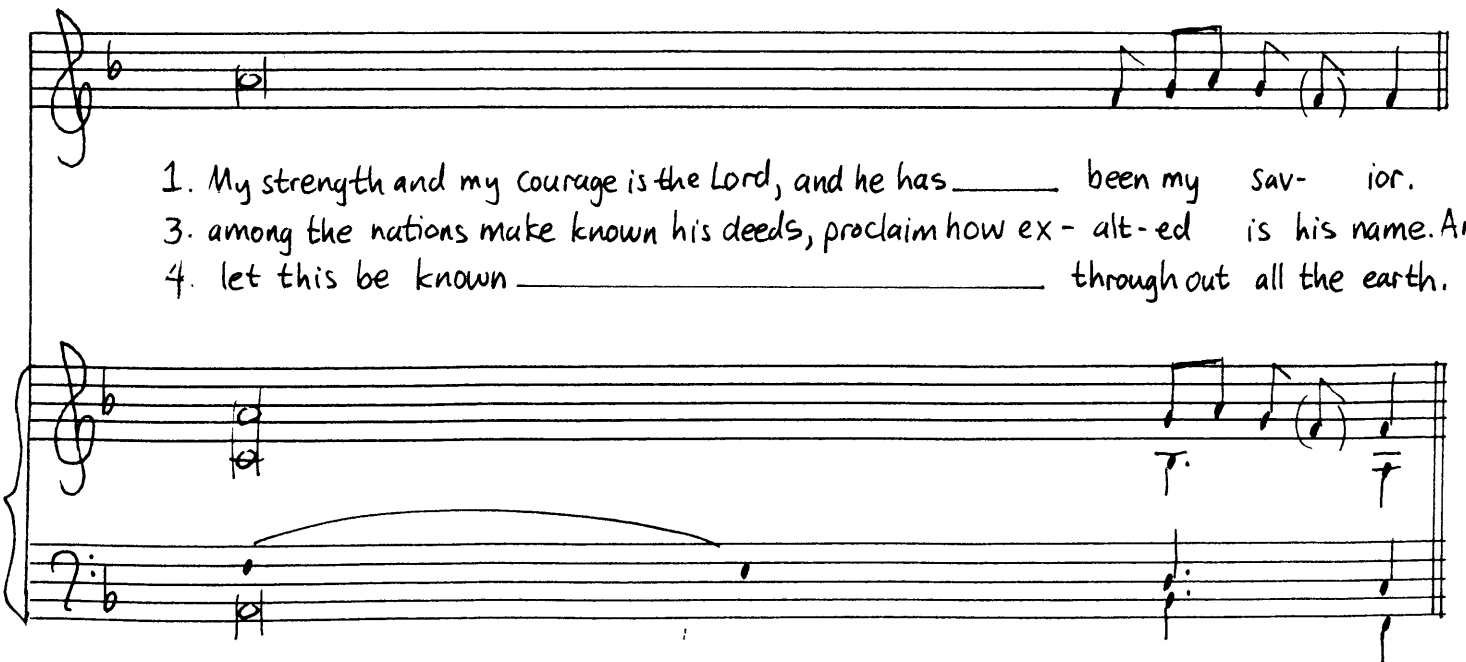 1. My strength and my courage is the Lord, and he has_____ been my sav- ior.
3. among the nations make known his deeds, proclaim how ex- alt-ed is his name.
4. let this be known_____ throughout all the earth.